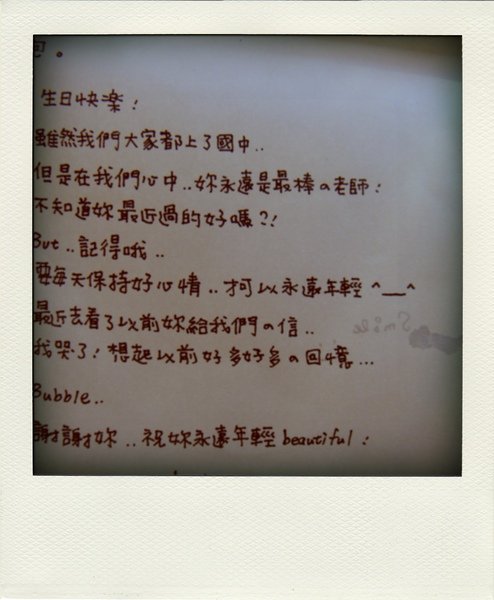 生日快樂！
雖然我們大家都上了國中..
但是在我們心中..妳永遠是最棒の老師！
不知道妳最近過的好嗎?!
But..記得哦..
要每天保持好心情..才可以永遠年輕^__^
最近去看了以前妳給我們の信..
我哭了！想起以前好多好多の回憶...
Bubble..
謝謝妳..祝妳永遠年輕beautiful！
Smile